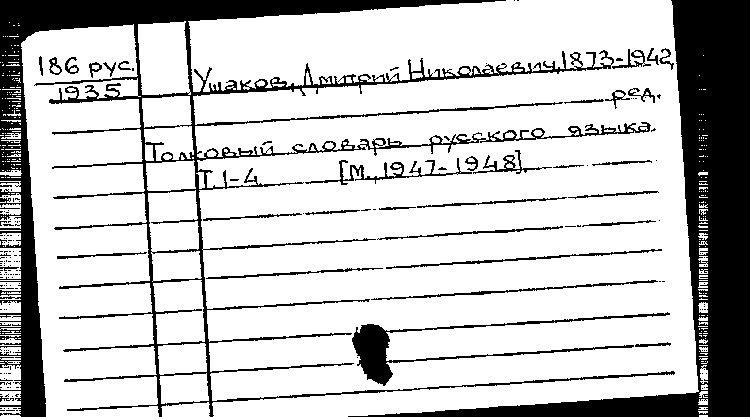 186 рус.
1935
Ушаков, Дмитрий Николаевич, 1873-1942,
ред.
Толковый словарь русского языка.
Т. 1-4. [М., 1947-1948].